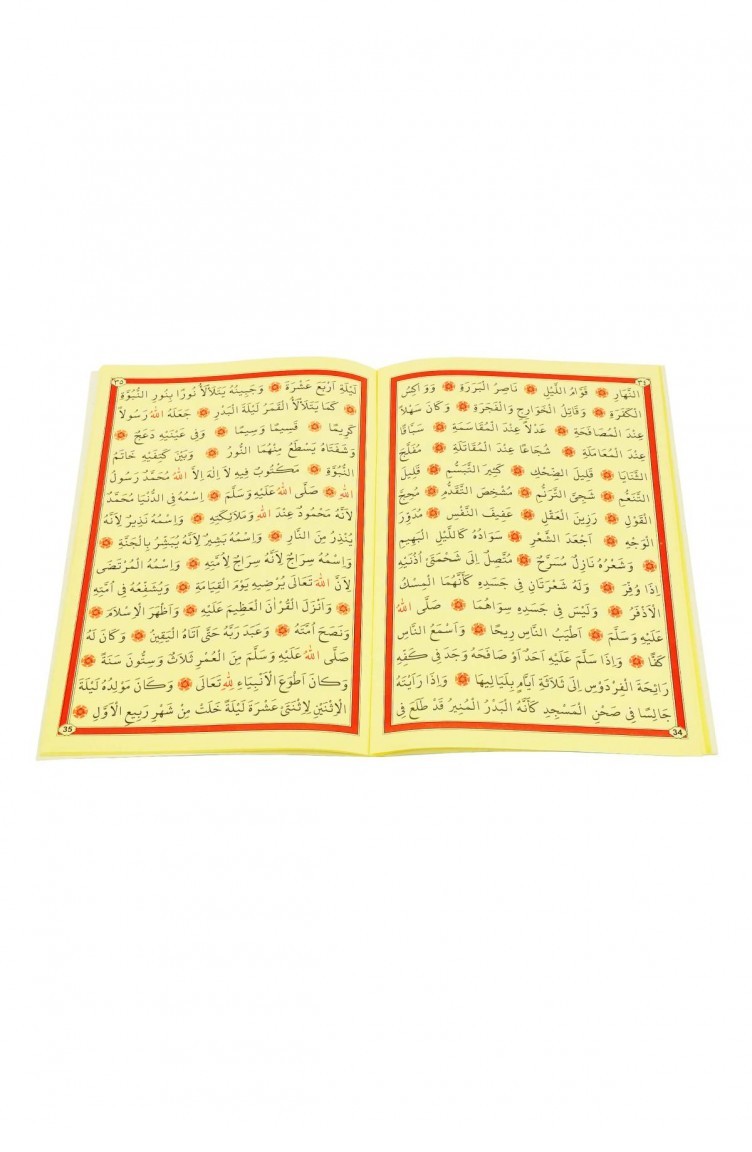 ٣٤
النَّهَارِ ۞ قَوَّامُ اللَّيْلِ ۞ نَاصِرُ الْبَرَرَةِ ۞ وَوَاكِسُ
الْكَفَرَةِ ۞ وَقَاتِلُ الْخَوَارِجِ وَالْفَجَرَةِ ۞ وَكَانَ سَهْلًا
عِنْدَ الْمُصَافَحَةِ ۞ عَدْلًا عِنْدَ الْمُقَاسَمَةِ ۞ سَبَّاقًا
عِنْدَ الْمُعَامَلَةِ ۞ شُجَاعًا عِنْدَ الْمُقَاتَلَةِ ۞ مُفَلَّجَ
الثَّنَايَا ۞ قَلِيلَ الضِّحْكِ ۞ كَثِيرَ التَّبَسُّمِ ۞ قَلِيلَ
التَّنَعُّمِ ۞ شَجِىَّ التَّرَنُّمِ ۞ مُشْخَصَ التَّقَدُّمِ ۞
الْقَوْلِ ۞ رَزِينَ الْعَقْلِ ۞ عَفِيفَ النَّفْسِ ۞ مُدَوَّرَ
الْوَجْهِ ۞ اَجْعَدَ الشَّعْرِ ۞ سَوَادُهُ كَاللَّيْلِ الْبَهِيمِ
۞ وَشَعْرُهُ نَازِلٌ مُسَرَّحٌ ۞ مُتَّصِلٌ اِلَى شَحْمَتَىْ اُذُنَيْهِ
اِذَا وُفِّرَ ۞ وَلَهُ شَعْرَتَانِ فِى جَسَدِهِ كَاَنَّهُمَا الْمِسْكُ
الْاَذْفَرُ ۞ وَلَيْسَ فِى جَسَدِهِ سِوَاهُمَا ۞ صَلَّى اللهُ
عَلَيْهِ وَسَلَّمَ ۞ اَطْيَبُ النَّاسِ رِيحًا ۞ وَاَسْمَعُ النَّاسِ
كَفًّا ۞ وَاِذَا سَلَّمَ عَلَيْهِ اَحَدٌ اَوْ صَافَحَهُ وَجَدَ فِى كَفِّهِ
رَائِحَةَ الْفِرْدَوْسِ اِلَى ثَلَاثَةِ اَيَّامٍ بِلَيَالِيهَا ۞ وَاِذَا رَاَيْتَهُ
جَالِسًا فِى صَحْنِ الْمَسْجِدِ كَاَنَّهُ الْبَدْرُ الْمُنِيرُ قَدْ طَلَعَ فِى
34
٣٥
لَيْلَةِ اَرْبَعَ عَشْرَةَ ۞ وَجَبِينُهُ يَتَلَأْلَأُ نُورًا بِنُورِ النُّبُوَّةِ
۞ كَمَا يَتَلَأْلَأُ الْقَمَرُ لَيْلَةَ الْبَدْرِ ۞ جَعَلَهُ اللهُ رَسُولًا
كَرِيمًا ۞ قَسِيمًا وَسِيمًا ۞ وَفِى عَيْنَيْهِ دَعَجٌ ۞
وَشَفَتَاهُ يَسْطَعُ مِنْهُمَا النُّورُ ۞ وَبَيْنَ كَتِفَيْهِ خَاتَمُ
النُّبُوَّةِ ۞ مَكْتُوبٌ فِيهِ لَا اِلٰهَ اِلَّا اللهُ مُحَمَّدٌ رَسُولُ
اللهِ ۞ صَلَّى اللهُ عَلَيْهِ وَسَلَّمَ ۞ اِسْمُهُ فِى الدُّنْيَا مُحَمَّدٌ
لِاَنَّهُ مَحْمُودٌ عِنْدَ اللهِ وَمَلَائِكَتِهِ ۞ وَاِسْمُهُ نَذِيرٌ لِاَنَّهُ
يُنْذِرُ مِنَ النَّارِ ۞ وَاِسْمُهُ بَشِيرٌ لِاَنَّهُ يُبَشِّرُ بِالْجَنَّةِ ۞
وَاِسْمُهُ سِرَاجٌ لِاَنَّهُ سِرَاجٌ لِاُمَّتِهِ ۞ وَاِسْمُهُ الْمُرْتَضَى
لِاَنَّ اللهَ تَعَالَى يُرْضِيهِ يَوْمَ الْقِيَامَةِ ۞ وَيُشَفِّعُهُ فِى اُمَّتِهِ
۞ وَاَنْزَلَ الْقُرْاٰنَ الْعَظِيمَ عَلَيْهِ ۞ وَاَظْهَرَ الْاِسْلَامَ
۞ وَنَصَحَ اُمَّتَهُ ۞ وَعَبَدَ رَبَّهُ حَتَّى اَتَاهُ الْيَقِينُ ۞ وَكَانَ لَهُ
صَلَّى اللهُ عَلَيْهِ وَسَلَّمَ مِنَ الْعُمْرِ ثَلَاثٌ وَسِتُّونَ سَنَةً ۞
وَكَانَ اَطْوَعَ الْاَنْبِيَاءِ لِلهِ تَعَالَى ۞ وَكَانَ مَوْلِدُهُ لَيْلَةَ
الْاِثْنَيْنِ لِاِثْنَتَىْ عَشْرَةَ لَيْلَةً خَلَتْ مِنْ شَهْرِ رَبِيعِ الْاَوَّلِ ۞
35